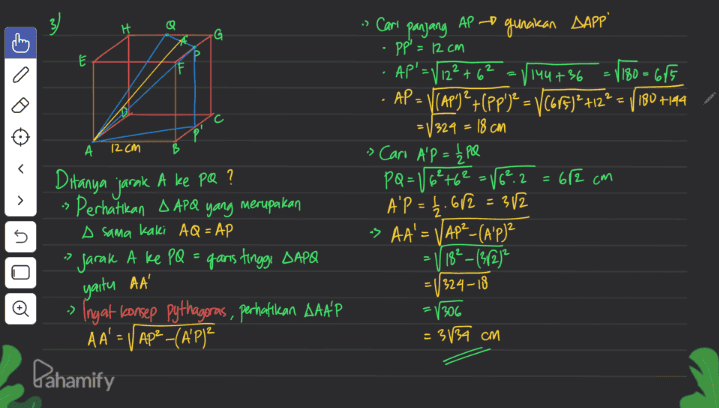 3)
H Q G
E F P
D C
A 12 cm B P'
Ditanya jarak A ke PQ ?
-> Perhatikan Δ APQ yang merupakan
Δ sama kaki AQ = AP
-> jarak A ke PQ = garis tinggi ΔAPQ
yaitu AA'
-> Ingat konsep pythagoras, perhatikan ΔAA'P
AA' = √AP² -(A'P)²
Pahamify
-> Cari panjang AP → gunakan ΔAPP'
· PP' = 12 cm
· AP' = √12² + 6² = √144+36 = √180 = 6√5
· AP = √(AP')² + (PP')² = √(6√5)² + 12² = √180 + 144
= √324 = 18 cm
-> Cari A'P = 1/2 PQ
PQ = √6²+6² = √6².2 = 6√2 cm
A'P = 1/2 . 6√2 = 3√2
-> AA' = √AP² -(A'P)²
= √18² -(3√2)²
= √324 - 18
= √306
= 3√34 cm